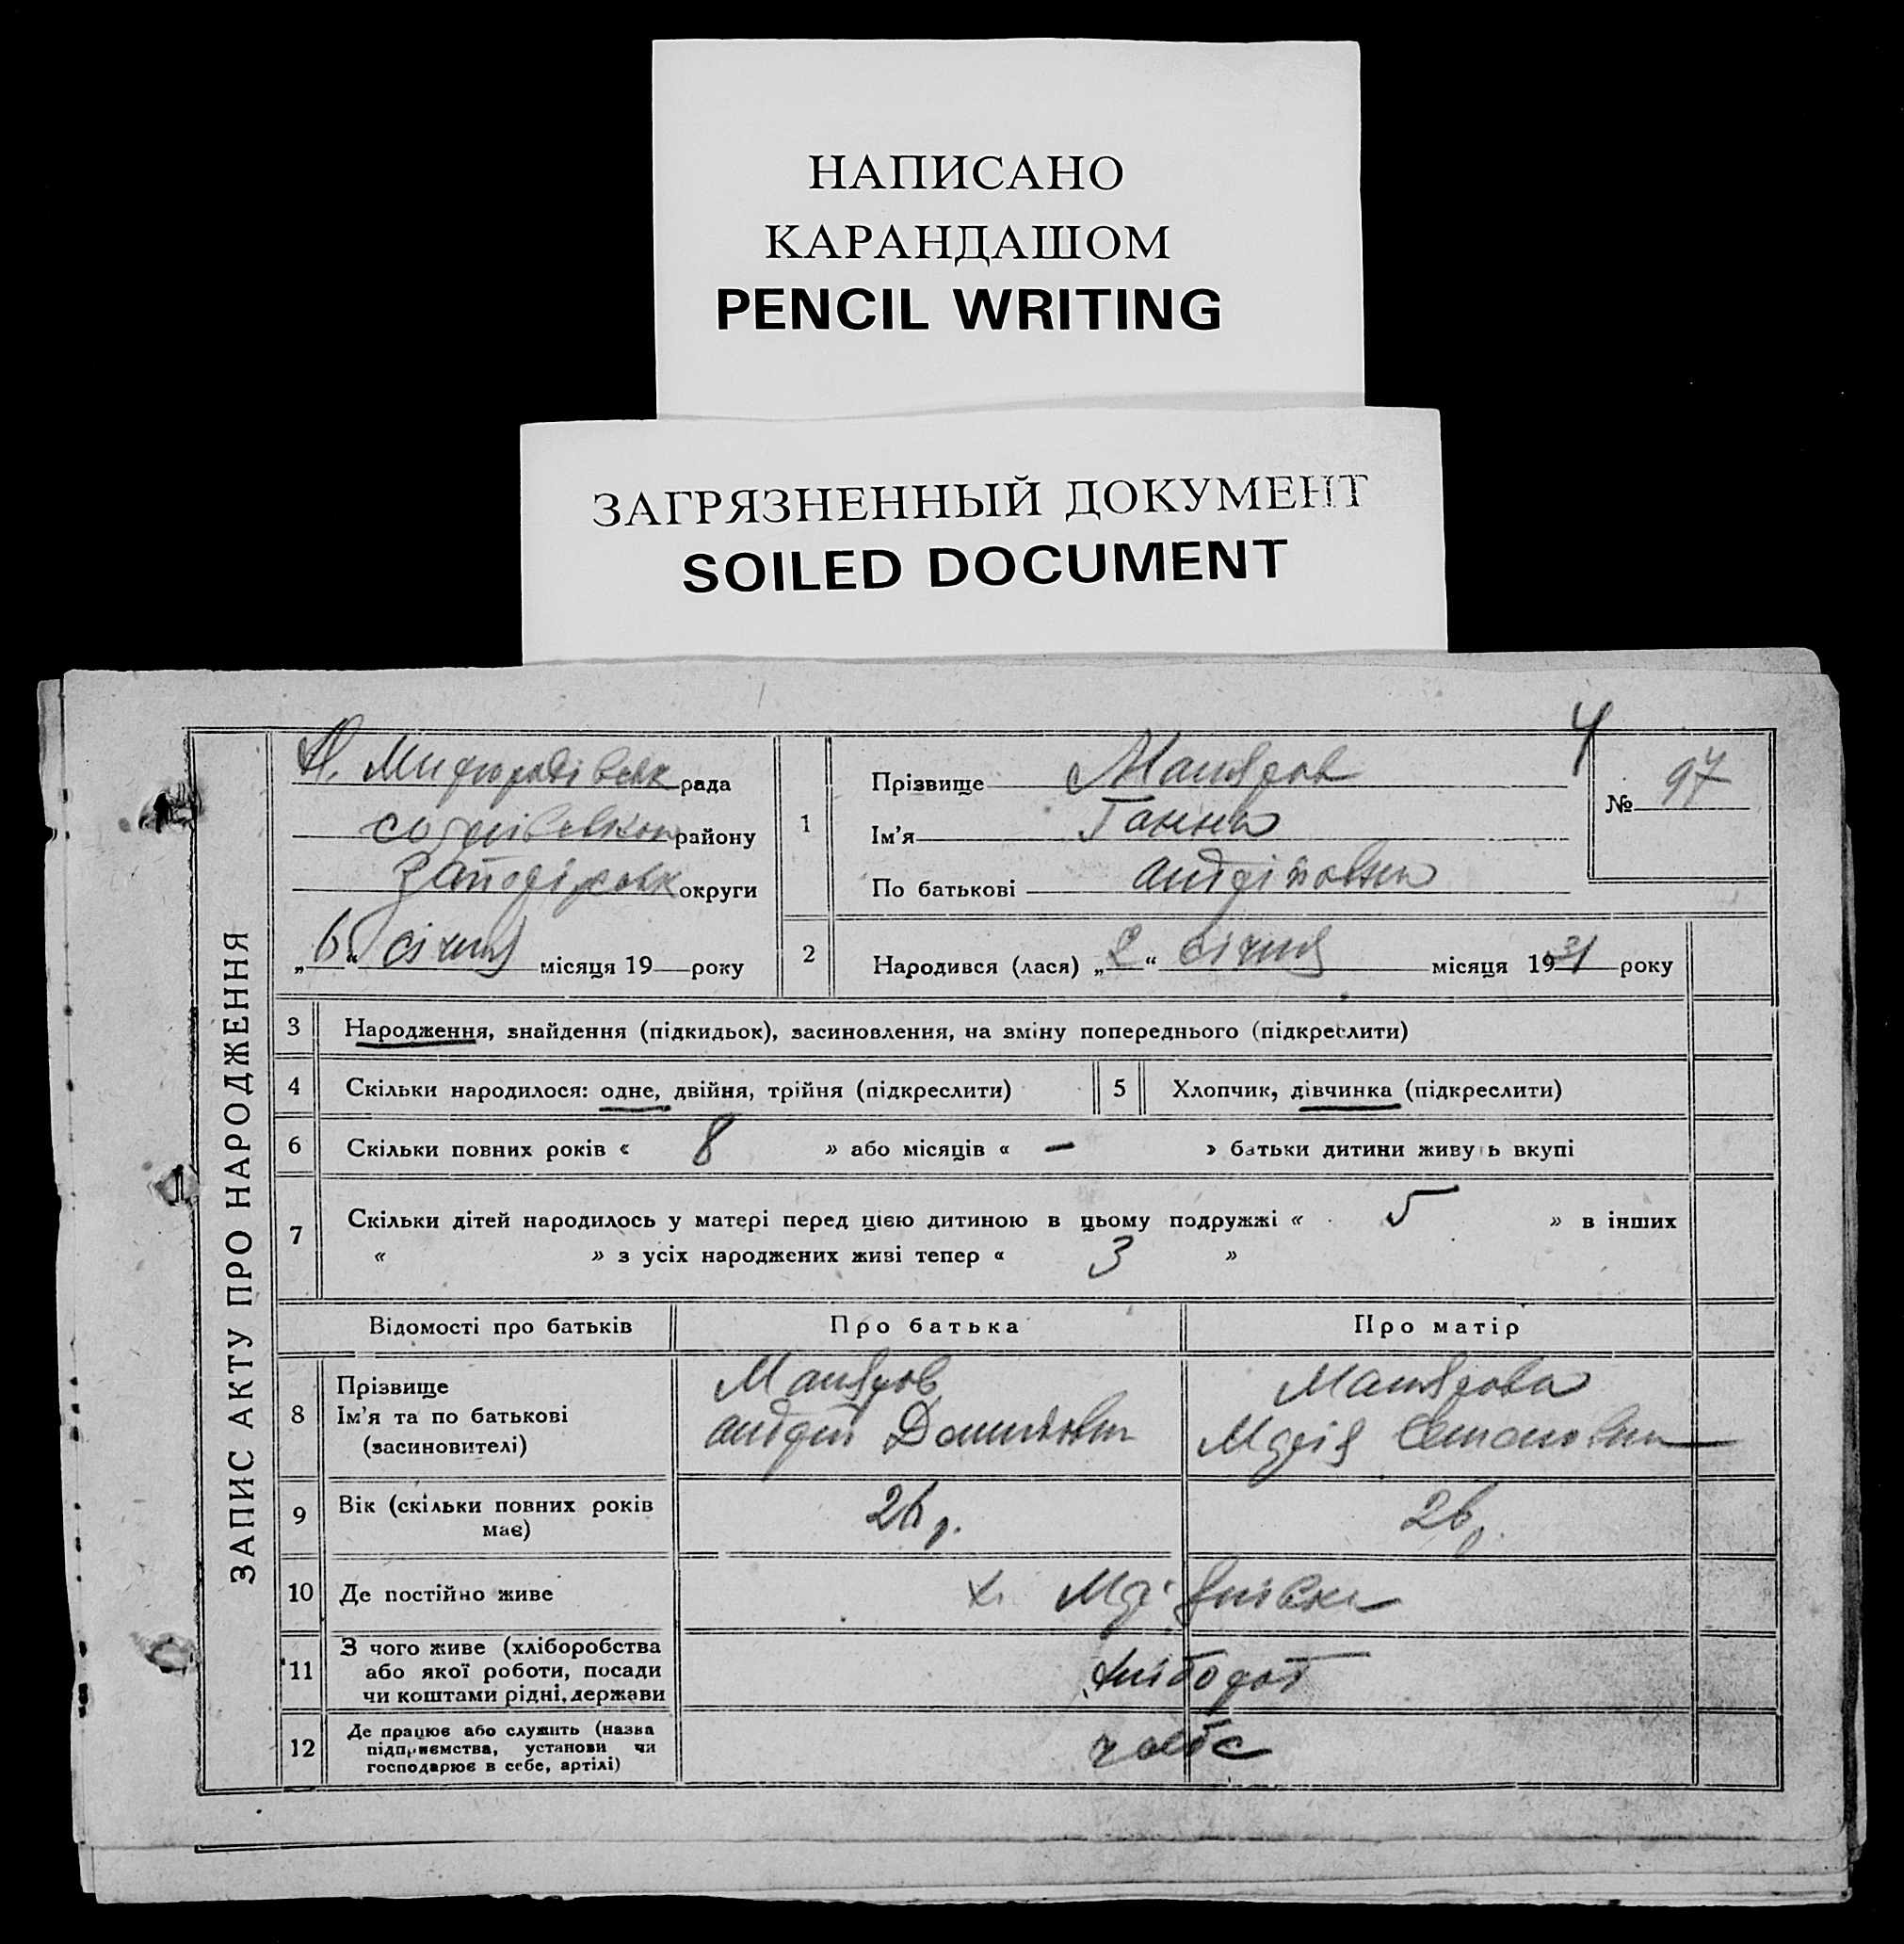 НАПИСАНО
КАРАНДАШОМ
PENCIL WRITING
ЗАГРЯЗНЕННЫЙ ДОКУМЕНТ
SOILED DOCUMENT
ЗАПИС АКТУ ПРО НАРОДЖЕННЯ
рада
району
округи
„6“ січня місяця 19 року
4
№ 97
1
Прізвище
Ім'я Ганна
По батькові Андріївна
2 Народився (лася) „2“ січня місяця 1931 року
3 Народження, знайдення (підкидьок), засиновлення, на зміну попереднього (підкреслити)
4 Скільки народилося: одне, двійня, трійня (підкреслити) 5 Хлопчик, дівчинка (підкреслити)
6 Скільки повних років « 8 » або місяців « – » батьки дитини живуть вкупі
7 Скільки дітей народилось у матері перед цією дитиною в цьому подружжі « 5 » в інших
« » з усіх народжених живі тепер « 3 »
Відомості про батьків Про батька Про матір
8 Прізвище
Ім'я та по батькові Андрій
(засновителі) Марія
9 Вік (скільки повних років має) 26 р. 26 р.
10 Де постійно живе х.
11 З чого живе (хліборобства або якої роботи, посади чи коштами рідні, держави хлібороб
12 Де працює або служить (назва підприємства, установи чи господарює в себе, артілі)